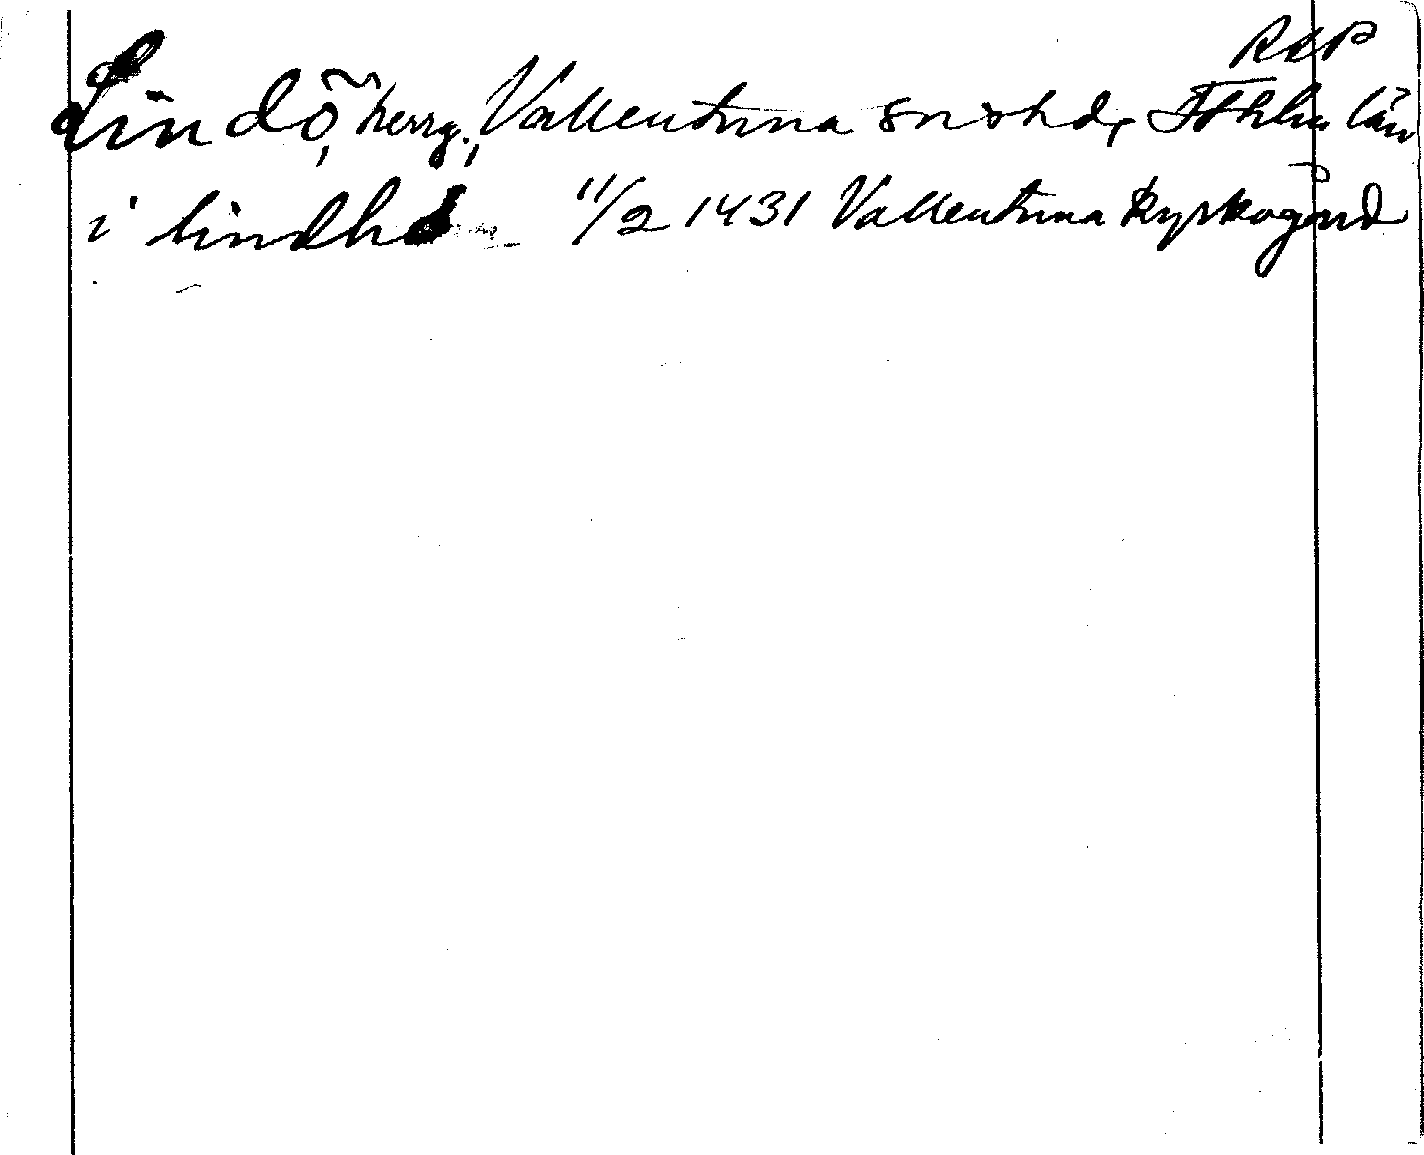 RAP
Lindö, herrg., Vallentuna sn o hd, Sthlm län
i lindhö 11/2 1431 Vallentuna kyrkogård